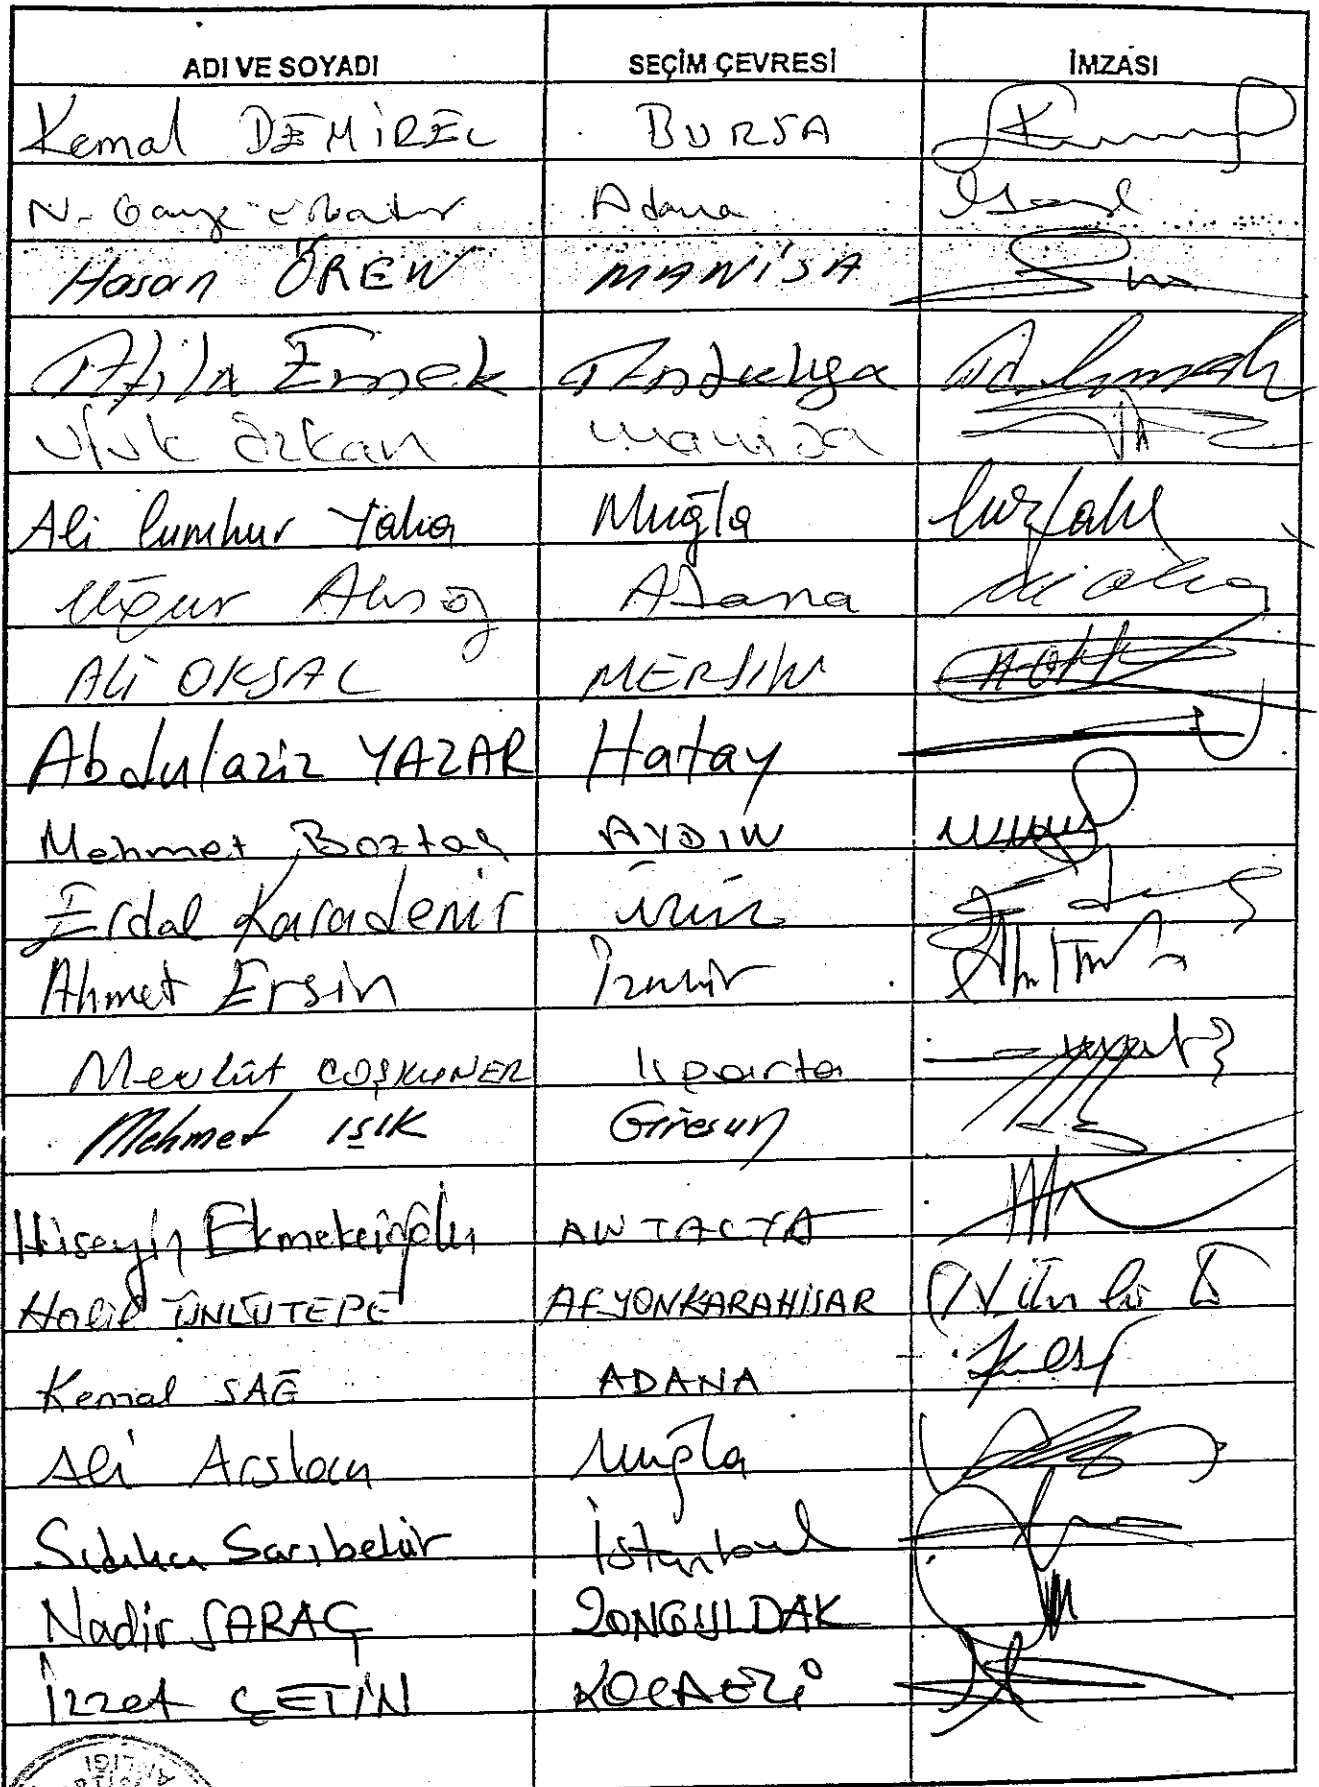 ADI VE SOYADI SEÇİM ÇEVRESİ İMZASI
Kemal DEMİREL BURSA
N. Gaye Erbatur Adana
Hasan ÖREN MANİSA
Atila Emek Antalya
Ufuk Özkan Manisa
Ali Cumhur Yaka Muğla
Uğur Aksöz Adana
ALİ OKSAL MERSİN
Abdulaziz YAZAR Hatay
Mehmet Boztaş AYDIN
Erdal Karademir İzmir
Ahmet Ersin İzmir
Mevlüt COŞKUNER Isparta
Mehmet IŞIK Giresun
Hüseyin Ekmekcioğlu ANTALYA
Halil ÜNLÜTEPE AFYONKARAHİSAR
Kemal SAĞ ADANA
Ali Arslan Muğla
Sıdıka Sarıbekir İstanbul
Nadir SARAÇ ZONGULDAK
İzzet ÇETİN KOCAELİ